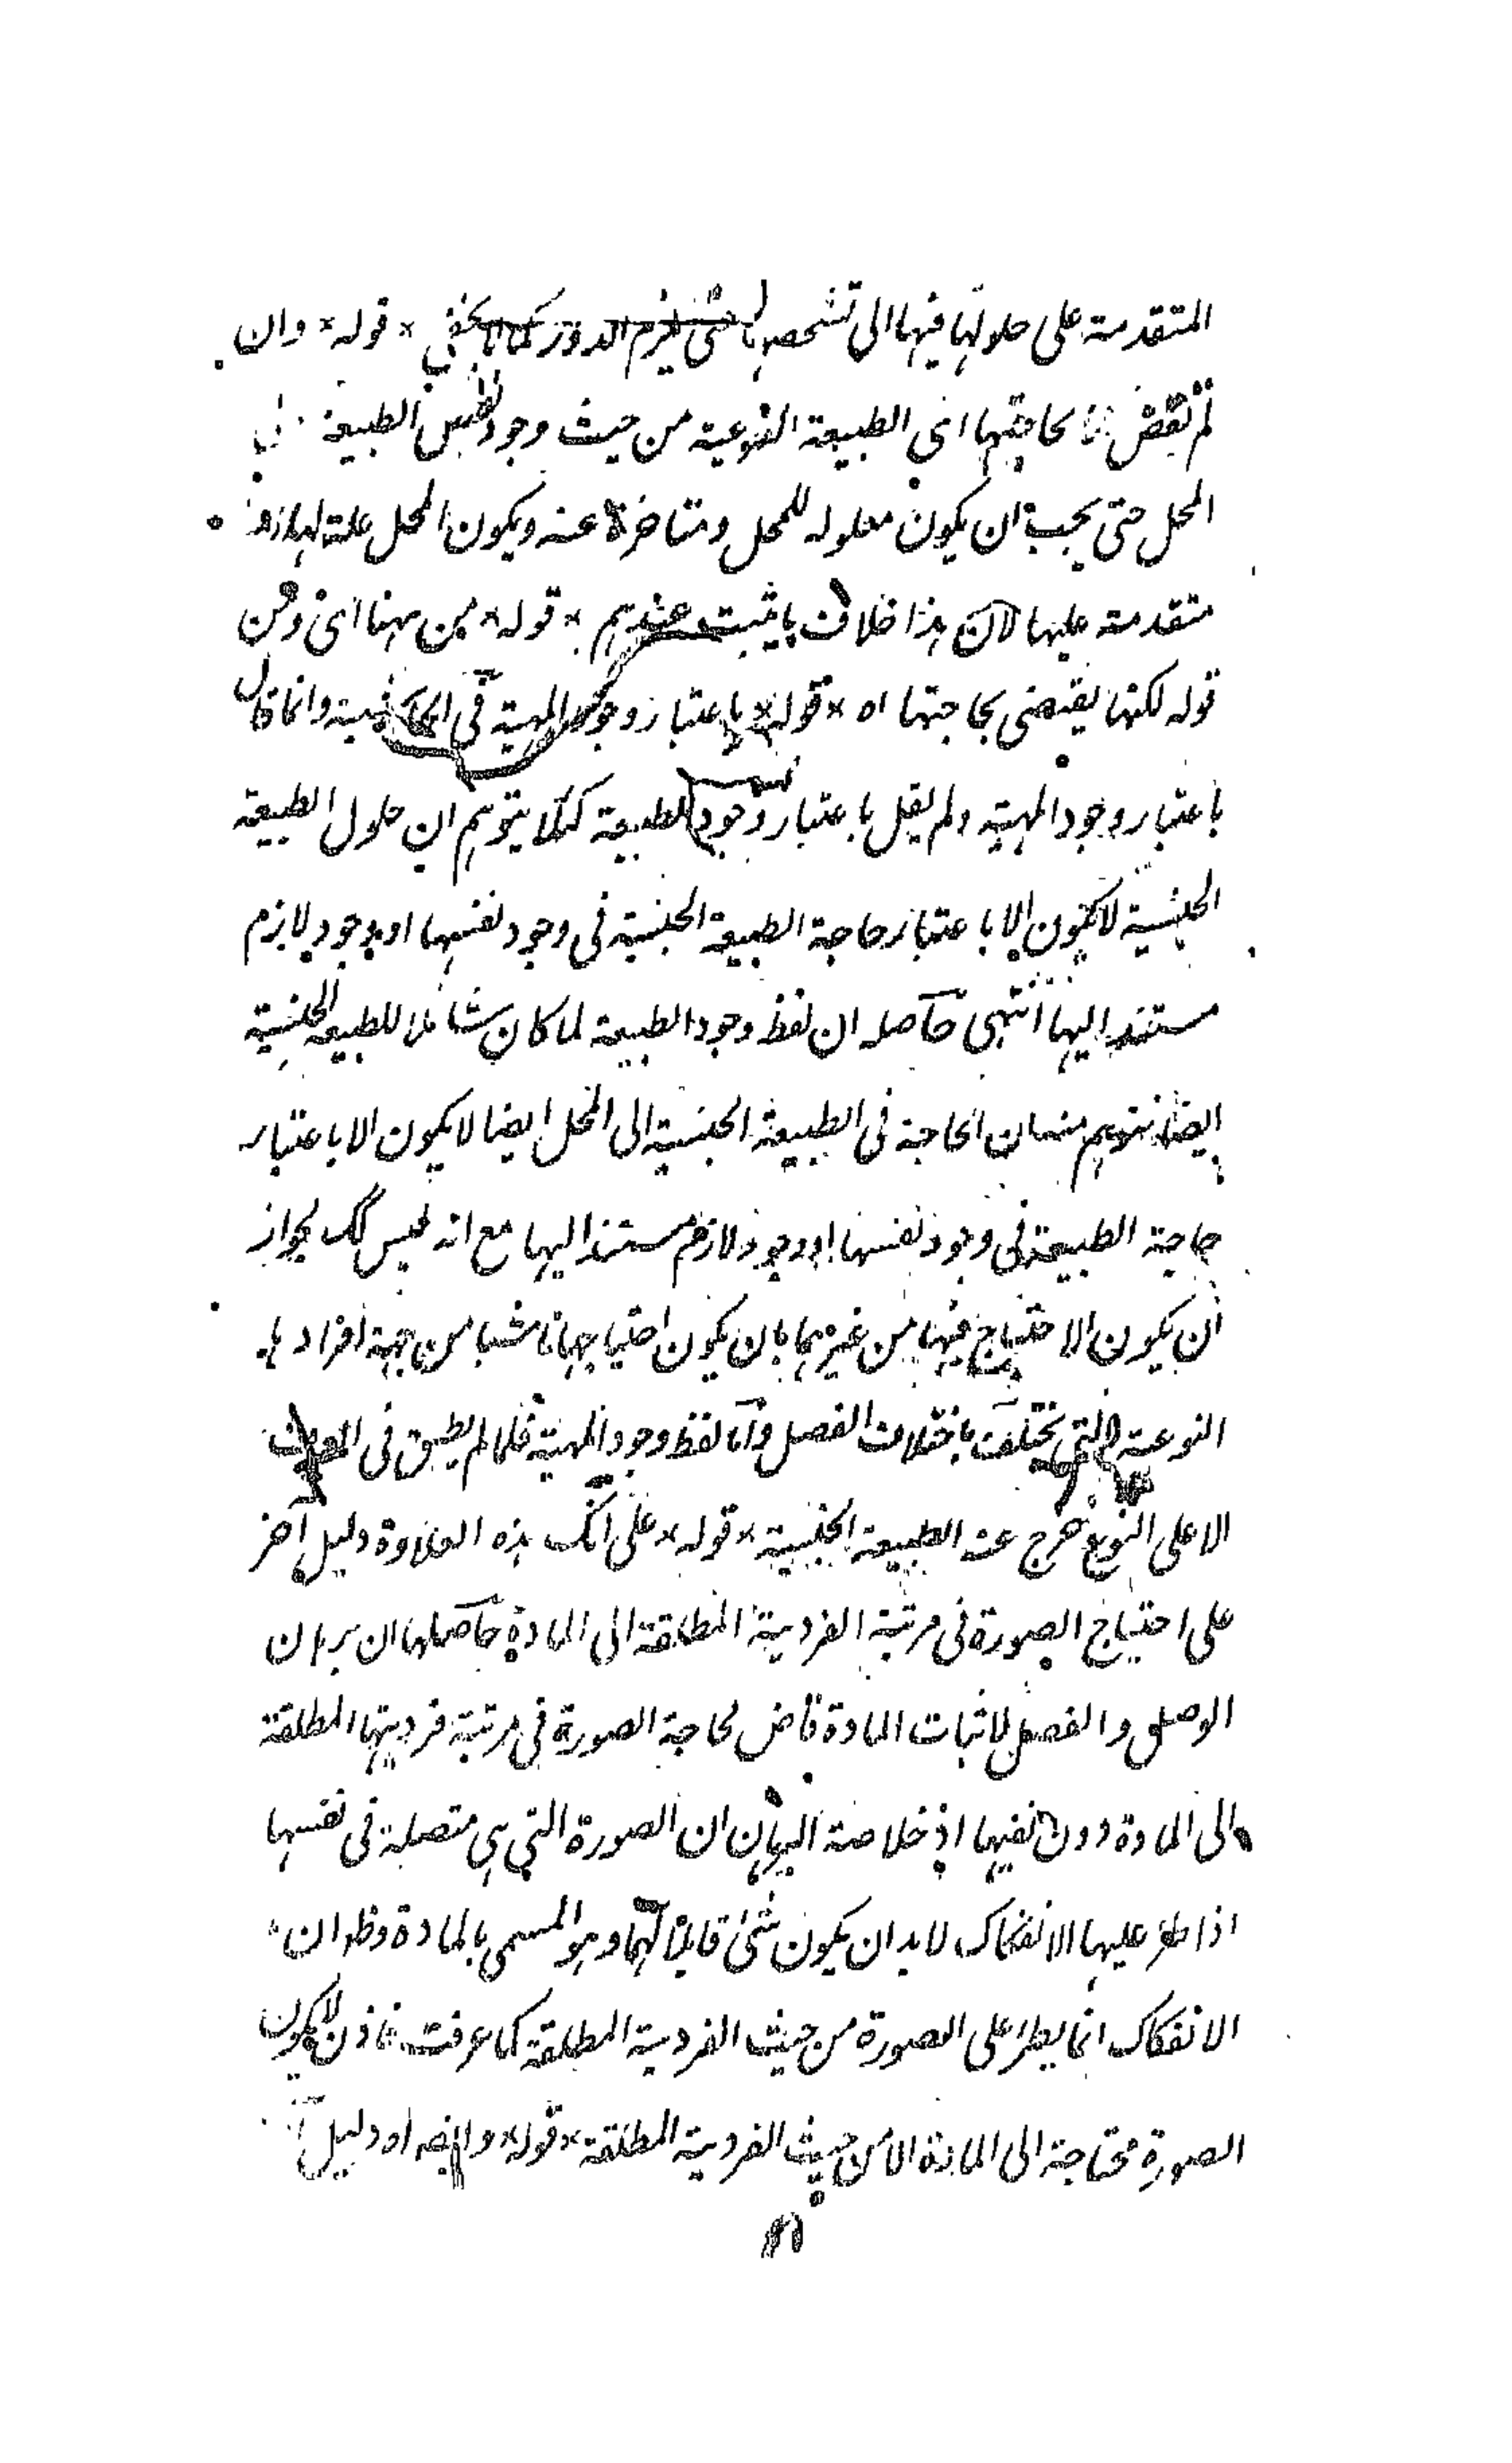 المتقدمة على حلولها فيها الى تشخصها حتى يلزم الدور كما لا يخفى * قوله * وان
لم تقض بحاجتها اى الطبيعة النوعية من حيث وجود نفس الطبيعة الى
المحل حتى يجب ان يكون معلوله للمحل ومتاخرة عنه ويكون المحل علة لها
متقدمة عليها لان هذا خلاف ما يثبت عندهم * قوله * من ههنا اى ومن
قوله لكنها يقتضى بحاجتها اه * قوله * باعتبار وجود المهية فى وانما قال
باعتبار وجود المهية ولم يقل باعتبار وجود الطبيعة كيلا يتوهم ان حلول الطبيعة
الجنسية لا يكون الا باعتبار حاجة الطبيعة الجنسية فى وجود نفسها او بوجود لازم
مستند اليها انتهى حاصله ان لفظ وجود الطبيعة لما كان شاملا للطبيعة الجنسية
ايضا يتوهم منه ان الحاجة فى الطبيعة الجنسية الى المحل ايضا لا يكون الا باعتبار
حاجة الطبيعة فى وجود نفسها او وجود لازم مستند اليها مع انه ليس كك لجواز
ان يكون الاحتياج فيها من غيرهما بان يكون احتياجها ناشيا من جهة افرادها
النوعية التى يختلف باختلاف الفصل واما لفظ وجود المهية فلما لم يطلق فى
الا على النوع خرج عنه الطبيعة الجنسية * قوله * على انك هذه العلاوة دليل آخر
على احتياج الصورة فى مرتبة الفردية المطلقة الى المادة حاصلها ان برهان
الوصل والفصل لاثبات المادة قاض لحاجة الصورة فى مرتبة فرديتها المطلقة
الى المادة دون نفسها اذ خلاصة البرهان ان الصورة التى هى متصلة فى نفسها
اذا طرء عليها الانفكاك لابد ان يكون شئ قابلا لهما وهو المسمى بالمادة وظ ان
الانفكاك انما يطرا على الصورة من حيث الفردية المطلقة كما عرفت فاذن لا يكون
الصورة محتاجة الى المادة الا من حيث الفردية المطلقة * قوله * وايضه اه دليل